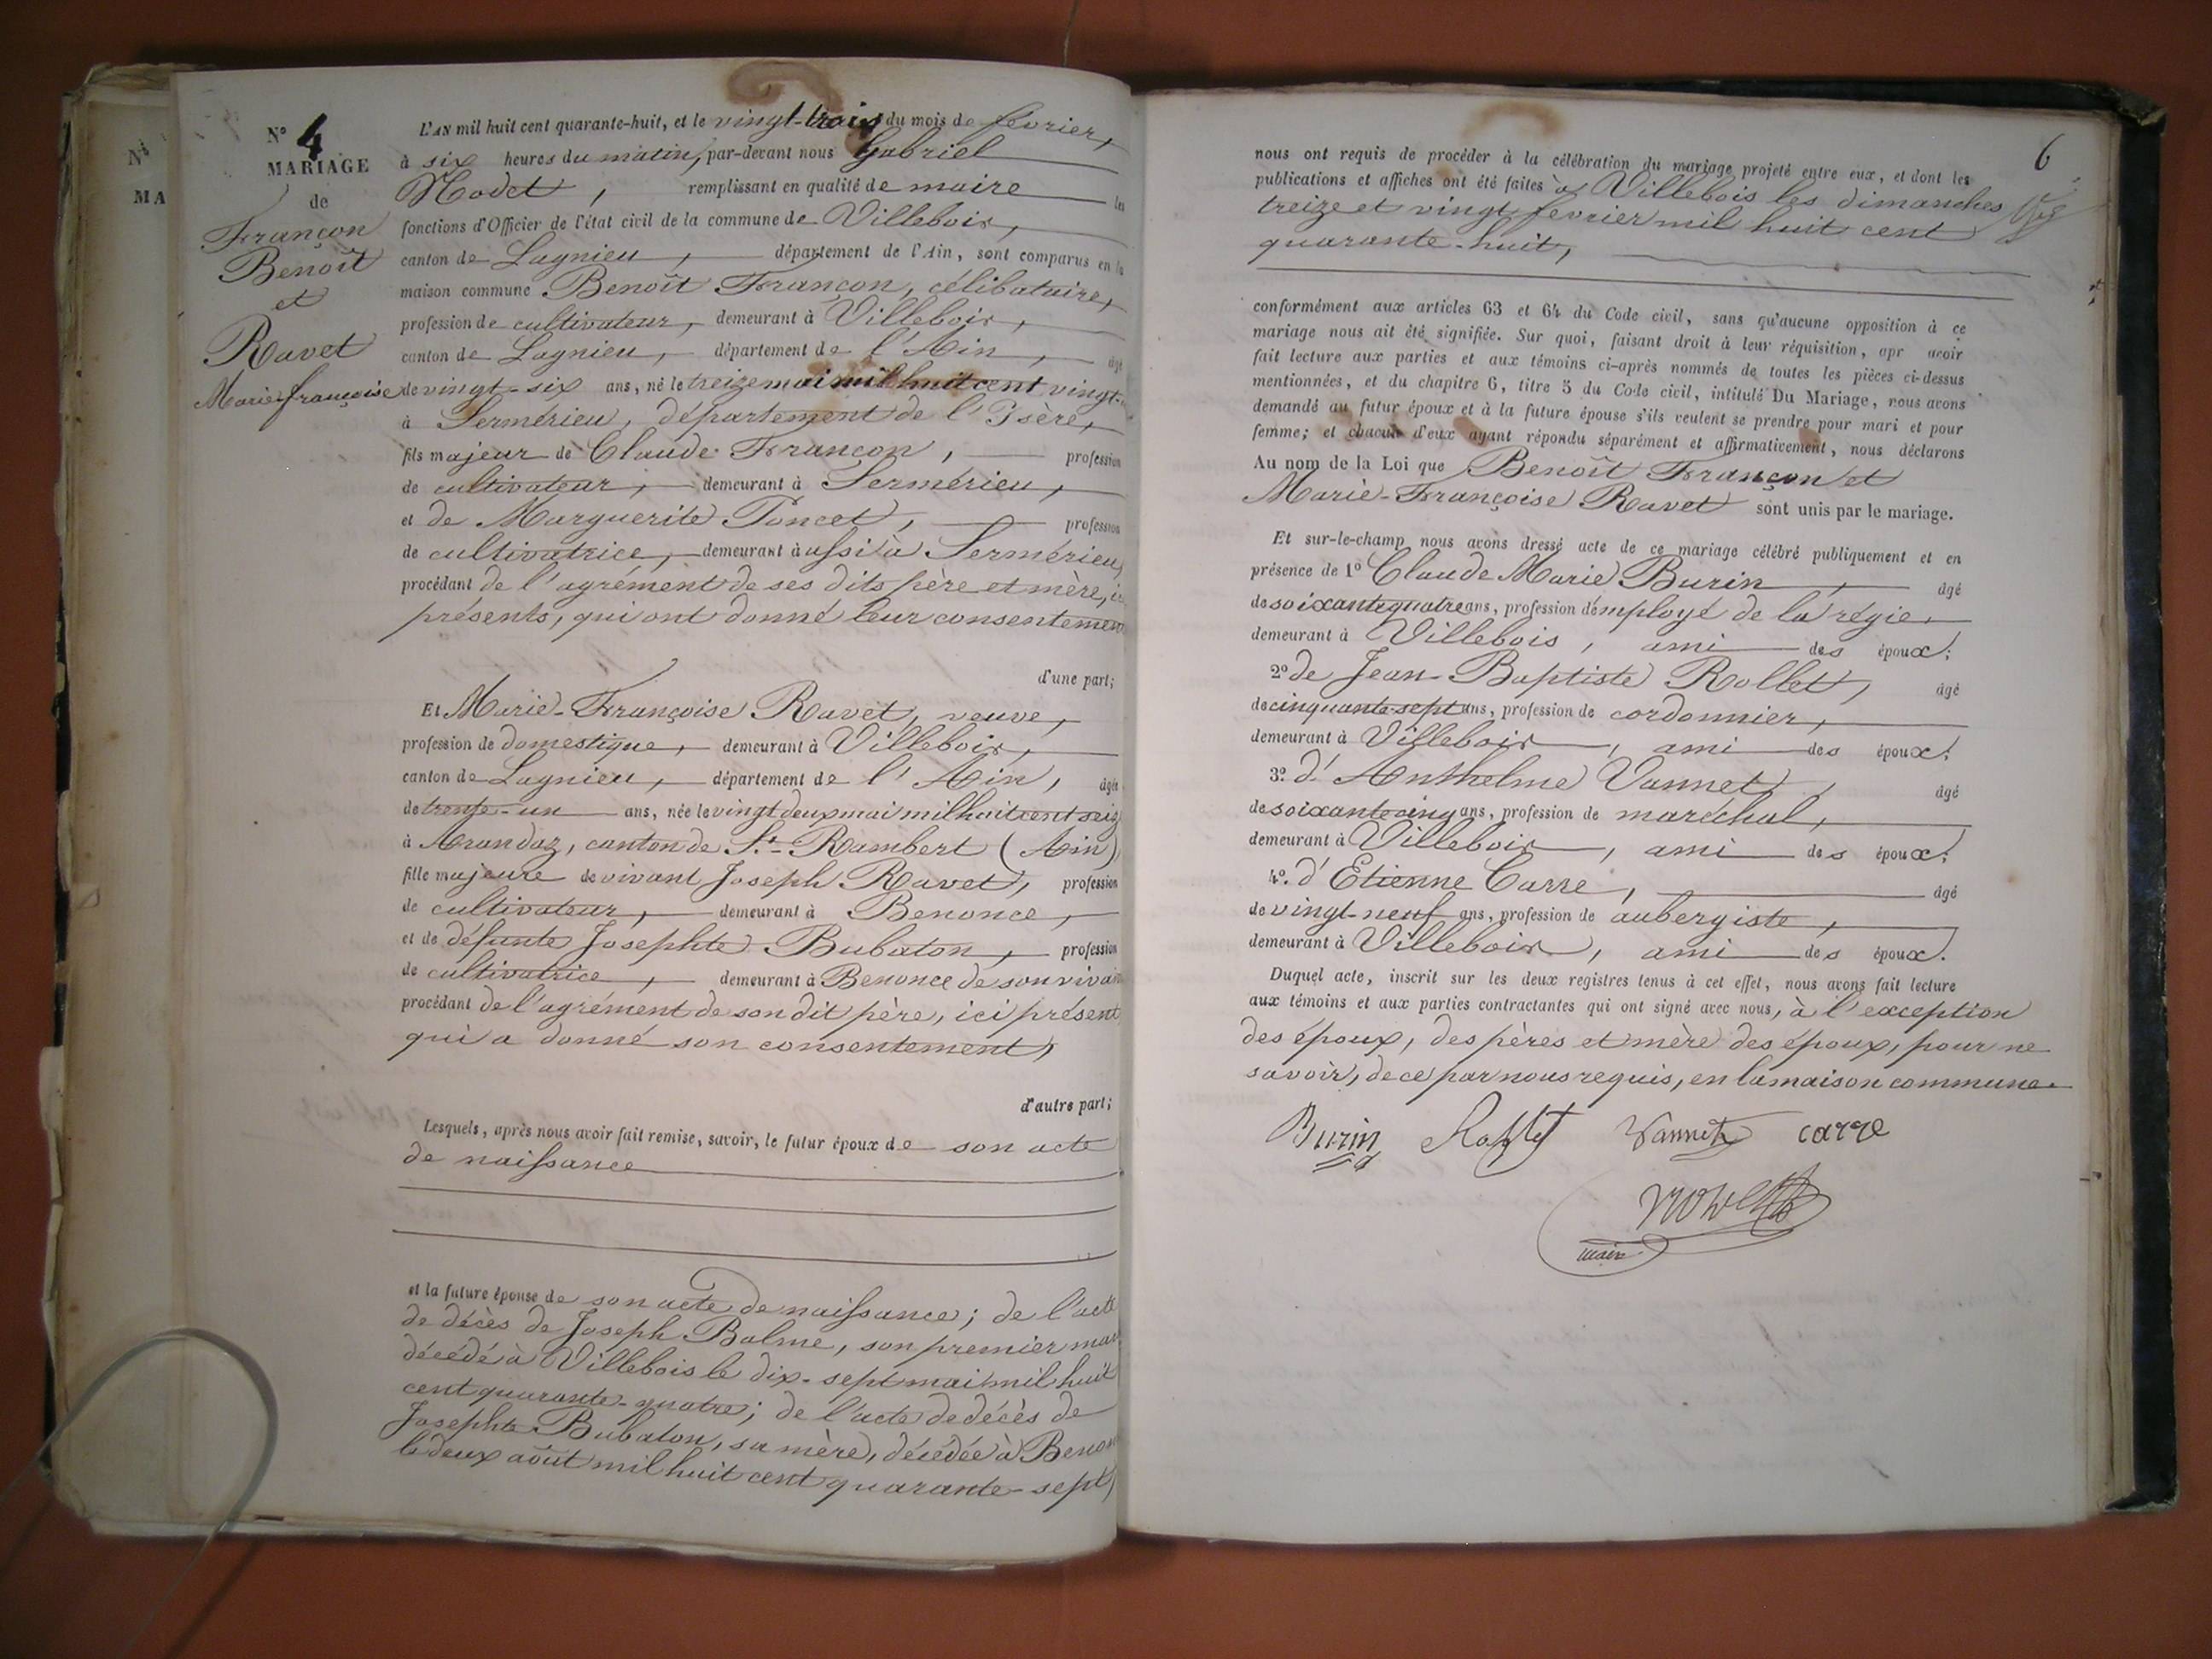 N°
MA
N° 4
MARIAGE
de
Françon
Benoît
et
Ravet
Marie-françoise
L'AN mil huit cent quarante-huit, et le vingt-trois du mois de février,
à six heures du matin, par-devant nous Gabriel
Modet, remplissant en qualité de maire les
fonctions d'Officier de l'état civil de la commune de Villebois,
canton de Lagnieu, département de l'Ain, sont comparus en la
maison commune Benoît Françon, célibataire,
profession de cultivateur, demeurant à Villebois,
canton de Lagnieu, département de l'Ain, âgé
de vingt-six ans, né le treize mai mil huit cent vingt-
à Sermérieu, département de l'Isère,
fils majeur de Claude Françon, profession
de cultivateur, demeurant à Sermérieu,
et de Marguerite Poncet, profession
de cultivatrice, demeurant à ussi à Sermérieu,
procédant de l'agrément de ses dits père et mère, ici
présents, qui ont donné leur consentement
d'une part;
Et Marie-Françoise Ravet, veuve,
profession de domestique, demeurant à Villebois,
canton de Lagnieu, département de l'Ain, âgée
de trente-un ans, née le vingt deux mai mil huit cent seize
à Arandaz, canton de St-Rambert (Ain)
fille majeure de vivant Joseph Ravet, profession
de cultivateur, demeurant à Benonce,
et de défunte Josephte Bubaton, profession
de cultivatrice, demeurant à Benonce de son vivant
procédant de l'agrément de son dit père, ici présent
qui a donné son consentement,
d'autre part;
Lesquels, après nous avoir fait remise, savoir, le futur époux de son acte
de naissance
et la future épouse de son acte de naissance; de l'acte
de décès de Joseph Balme, son premier mari
décédé à Villebois le dix-sept mai mil huit
cent quarante-quatre; de l'acte de décès de
Josephte Bubaton, sa mère, décédée à Benonce
le deux août mil huit cent quarante-sept,
6
nous ont requis de procéder à la célébration du mariage projeté entre eux, et dont les
publications et affiches ont été faites à Villebois les dimanches
treize et vingt fevrier mil huit cent
quarante-huit,
conformément aux articles 63 et 64 du Code civil, sans qu'aucune opposition à ce
mariage nous ait été signifiée. Sur quoi, faisant droit à leur réquisition, apr avoir
fait lecture aux parties et aux témoins ci-après nommés de toutes les pièces ci-dessus
mentionnées, et du chapitre 6, titre 5 du Code civil, intitulé Du Mariage, nous avons
demandé au futur époux et à la future épouse s'ils veulent se prendre pour mari et pour
femme; et chacun d'eux ayant répondu séparément et affirmativement, nous déclarons
Au nom de la Loi que Benoît Françon et
Marie-Françoise Ravet sont unis par le mariage.
Et sur-le-champ nous avons dressé acte de ce mariage célébré publiquement et en
présence de 1° Claude Marie Burin, âgé
de soixante quatre ans, profession d'employé de la régie,
demeurant à Villebois, ami des époux;
2° de Jean-Baptiste Rollet, âgé
de cinquante-sept ans, profession de cordonnier,
demeurant à Villebois, ami des époux;
3° d'Anthelme Vannet, âgé
de soixante cinq ans, profession de maréchal,
demeurant à Villebois, ami des époux;
4° d'Etienne Carre, âgé
de vingt-neuf ans, profession de aubergiste,
demeurant à Villebois, ami des époux.
Duquel acte, inscrit sur les deux registres tenus à cet effet, nous avons fait lecture
aux témoins et aux parties contractantes qui ont signé avec nous, à l'exception
des époux, des pères et mère des époux, pour ne
savoir, de ce par nous requis, en la maison commune.
Burin Vannet carre
maire